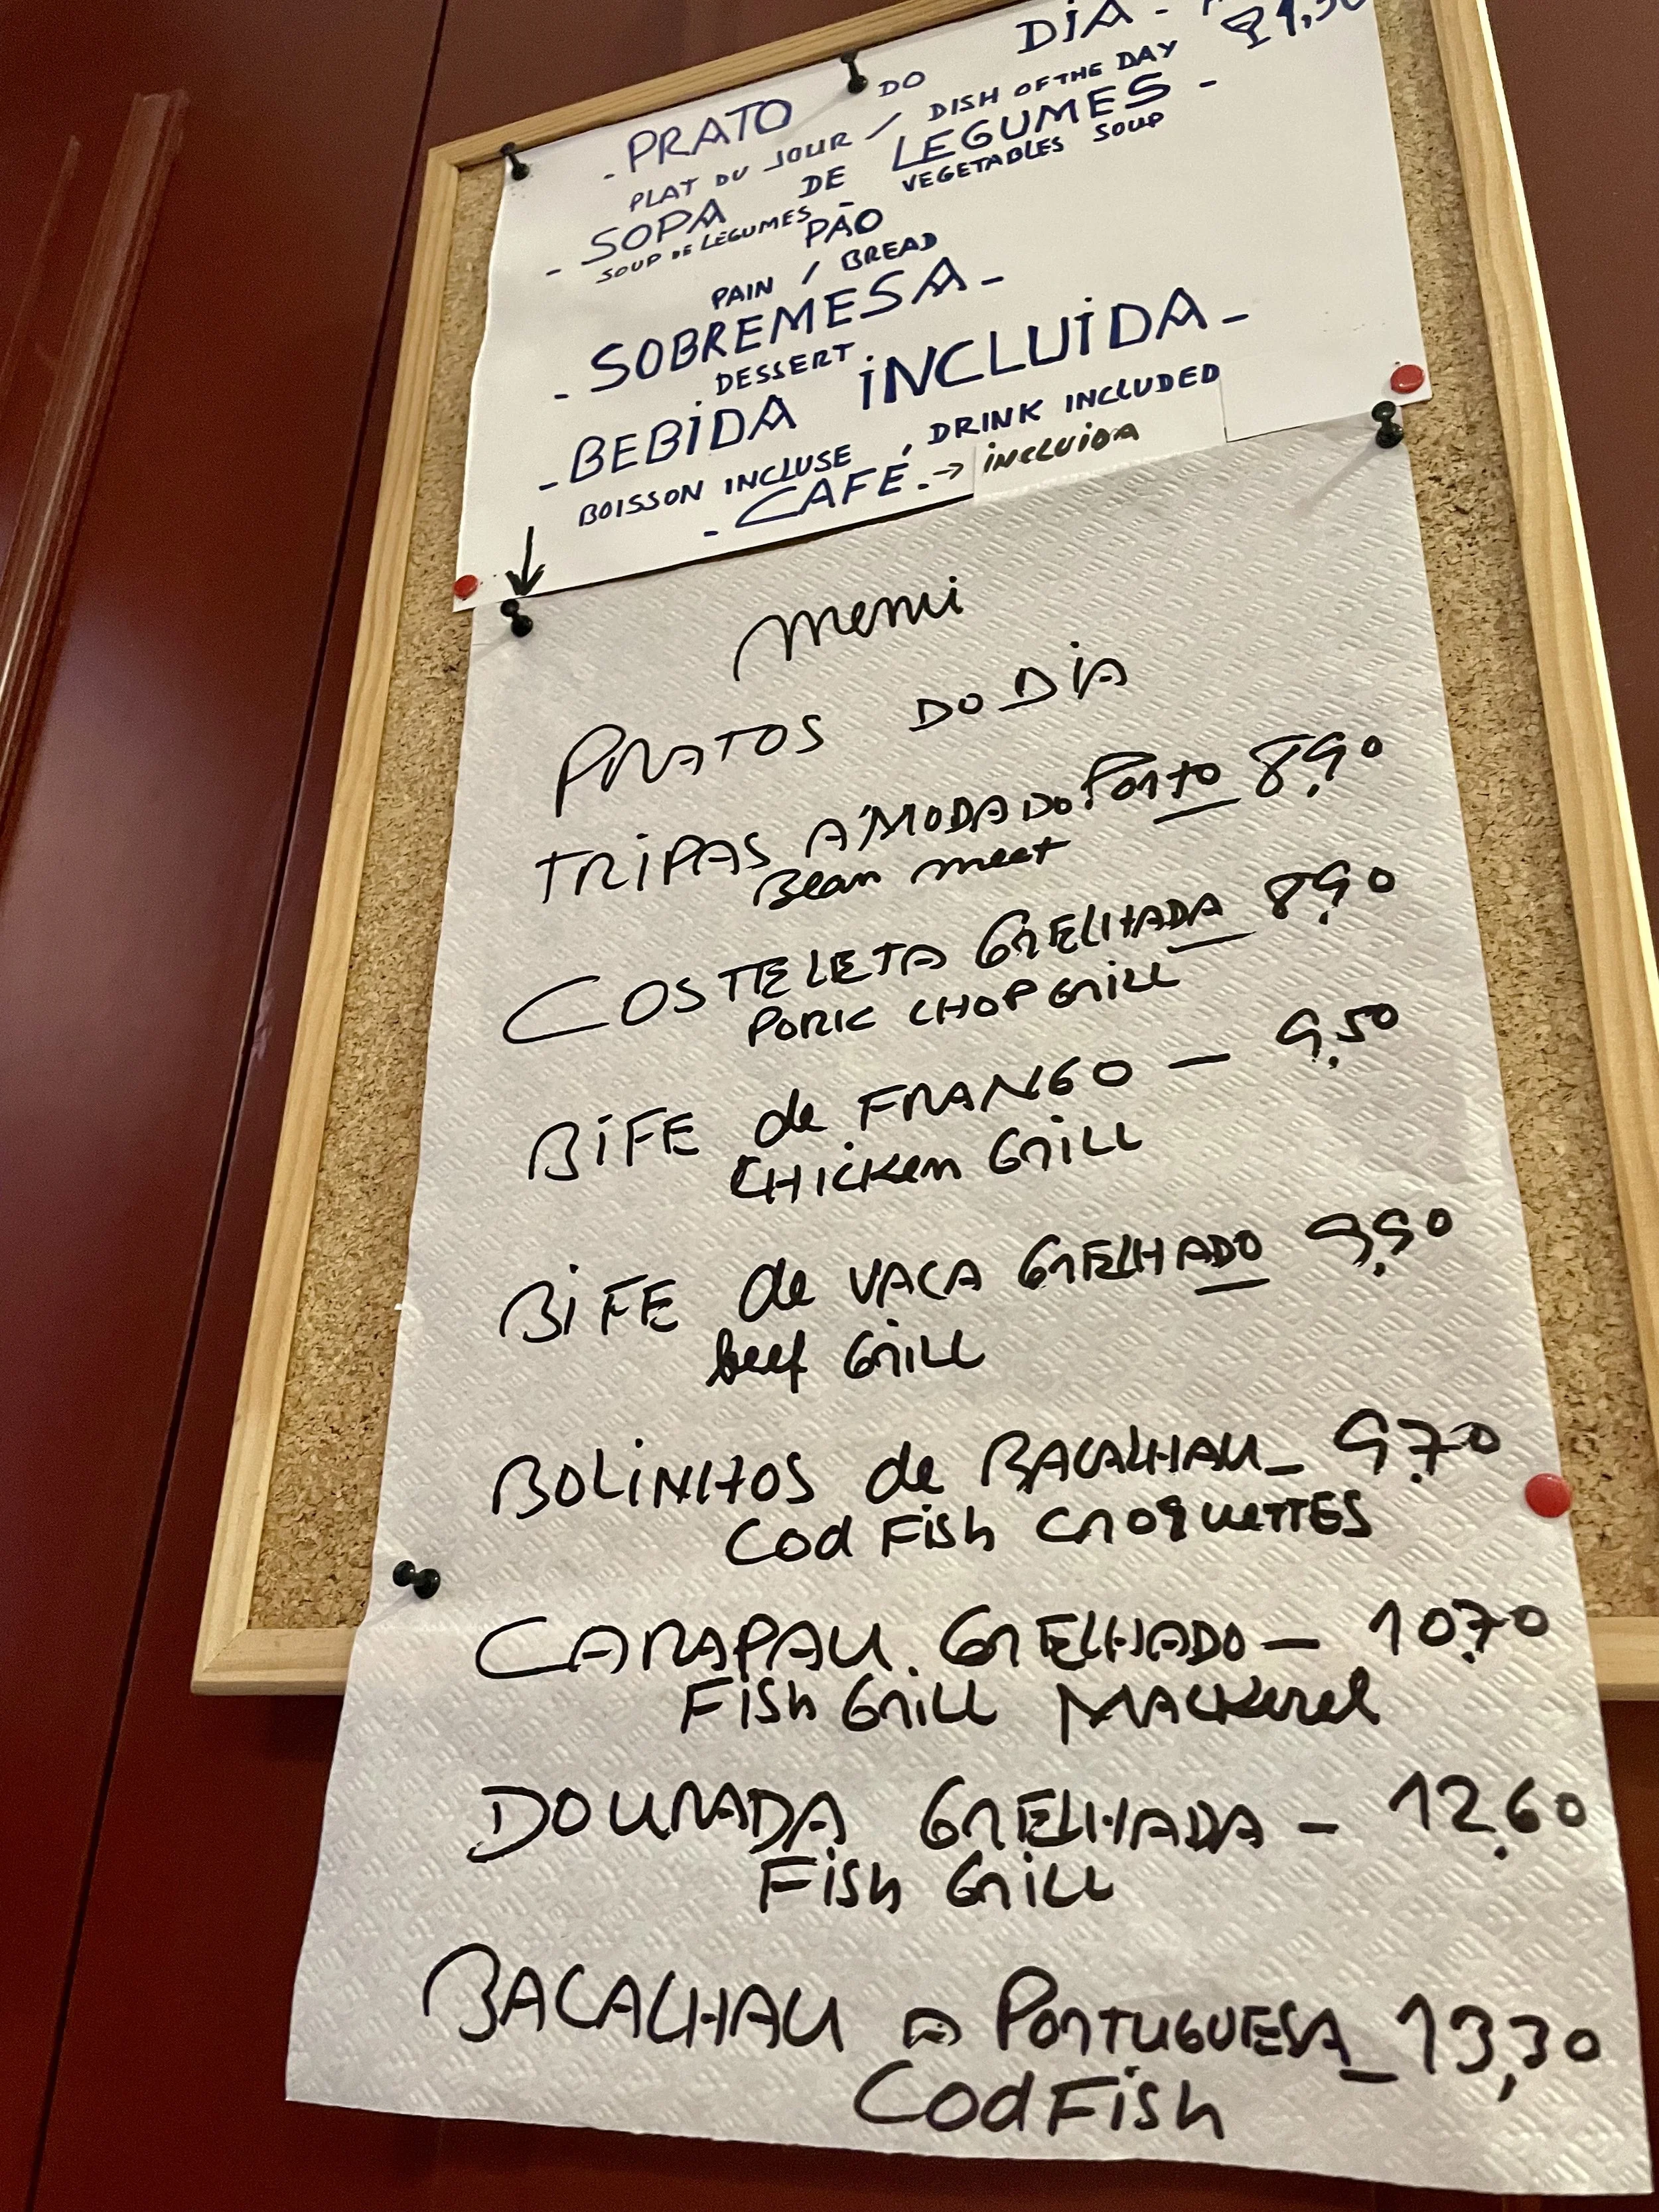 - PRATO DO DIA -
PLAT DU JOUR / DISH OF THE DAY
- SOPA DE LEGUMES -
SOUP DE LÉGUMES - VEGETABLES SOUP
PÃO
PAIN / BREAD
- SOBREMESA -
DESSERT
- BEBIDA INCLUIDA -
BOISSON INCLUSE, DRINK INCLUDED
- CAFÉ. → INCLUIDA
Menu
PRATOS DO DIA
TRIPAS A'MODA DO PORTO 8,90
Bean meet
COSTELETA GRELHADA 8,90
PORK CHOP GRILL
BIFE de FRANGO — 9,50
CHicken GRILL
BIFE de VACA GRELHADO 9,90
beef GRILL
BOLINHOS de BACALHAU - 9,70
Cod FisH CROQUETTES
CARAPAU. GRELHADO — 10,70
FisH GRILL MACKerel
DOURADA GRELHADA - 12,60
FisH GRILL
BACALHAU a PORTUGUESA - 13,30
Cod FisH